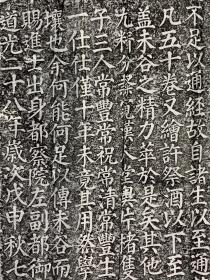 不足以通經故自諸生以至通
凡五十卷又繪許祭酒以下至
蓋未谷之精力萃於是矣其他
先斬〻
子三人常豐常悅常清常豐生
一仕仕僅十年未竟其用然學
壤也余何能何足以傳未谷而
賜進士出身都察院左副都御
道光二十八年歲次戊申秋七